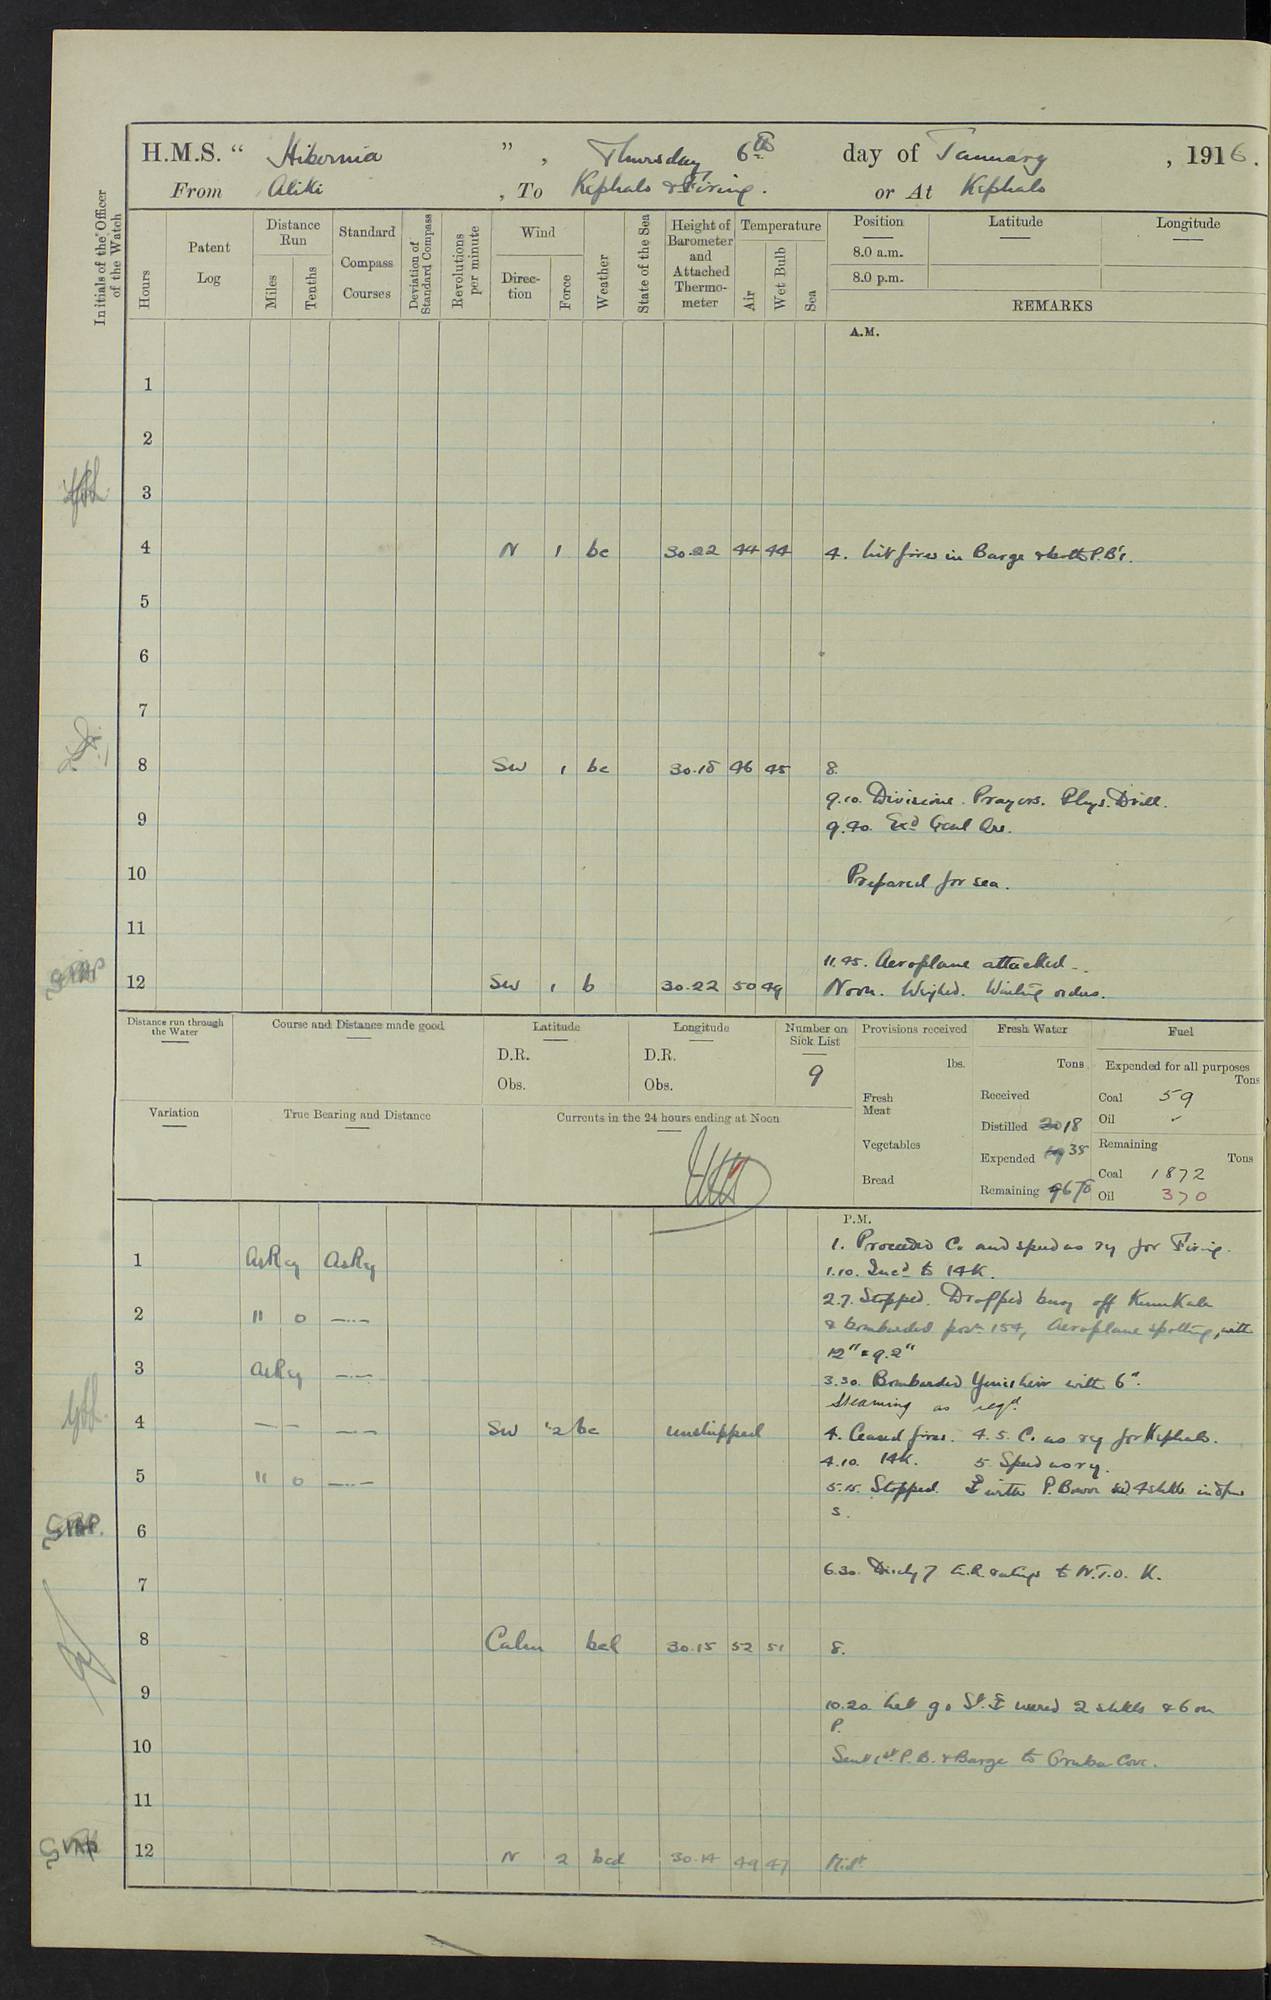 H.M.S. “ Hibernia ” , Thursday 6th day of January , 1916.
From Aliki , To Kephalo & Firing. or At Kephalo
Initials of the Officer of the Watch
Hours
Patent Log
Distance Run
Miles
Tenths
Standard Compass Courses
Deviation of Standard Compass
Revolutions per minute
Wind
Direction
Force
Weather
State of the Sea
Height of Barometer and Attached Thermometer
Temperature
Air
Wet Bulb
Sea
Position Latitude Longitude
8.0 a.m.
8.0 p.m.
REMARKS
A.M.
1
2
3
4 N 1 bc 30.22 44 44 4. Lit fires in Barge & both P.B's.
5
6
7
8 SW 1 bc 30.18 46 45 8.
9.10. Divisions. Prayers. Phys. Drill.
9 9.40. Exd Genl Qrs.
10 Prepared for sea.
11
11.45. Aeroplane attacked.
12 SW 1 b 30.22 50 49 Noon. Weighed. Waiting orders.
Distance run through the Water
Course and Distance made good
Latitude
D.R.
Obs.
Longitude
D.R.
Obs.
Number on Sick List
9
Provisions received
lbs.
Fresh Meat
Vegetables
Bread
Fresh Water
Tons
Received
Distilled 20 18
Expended 38
Remaining
Fuel
Expended for all purposes
Tons
Coal 59
Oil
Remaining
Tons
Coal 1872
Oil 370
Variation
True Bearing and Distance
Currents in the 24 hours ending at Noon
P.M.
1. Proceeded Co. and speed as rq for Firing.
1 AsRq AsRq 1.10. Incd to 14K.
2.7. Stopped. Dropped buoy off Kum Kale
2 11 0 —..— & bombarded posn 154, Aeroplane spotting, with
12" & 9.2"
3 AsRq —..— 3.30. Bombarded Yenisheir with 6".
Steaming as reqd.
4 — — — — SW 2 bc unshipped 4. Ceased fires. 4.5. Co. as rq for Kephalo.
4.10. 14K. 5. Speed as rq.
5 11 0 —..— 5.15. Stopped. with P. Bower
6
6.30. Disch 7 ratings to N.T.O. K.
7
8 Calm bcl 30.15 52 51 8.
9
10.20. Let go St. veered 2 shkls & 6 on
P.
10 Sent 1st P.B. & Barge to Cove.
11
12 N 2 bcd 30.14 49 47 Midt